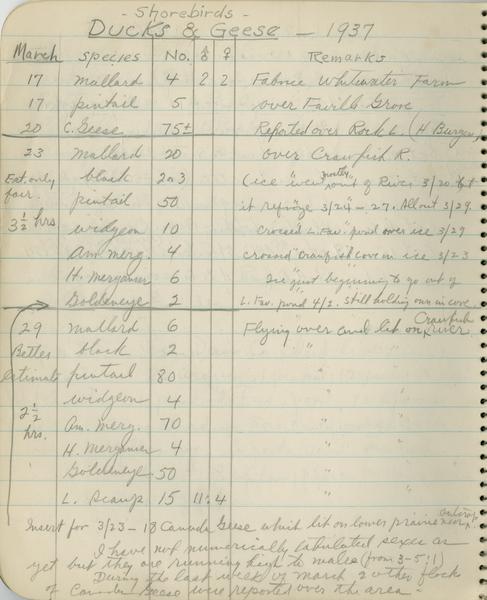 - Shorebirds -
Ducks & Geese - 1937
March Species No. ♂ ♀ Remarks
17 mallard 4 2 2 Fabrice Whitewater Farm
17 pintail 5 over Faville Grove
20 C. Geese 75± Reported over Rock L. (H Burgen)
23 mallard 20 over Crawfish R.
Est. only black 2 or 3 (ice went mostly out of River 3/20 but
fair. pintail 50 it refroze 3/24 - 27. All out 3/29
3 1/2 hrs widgeon 10 Crossed L. Fav. pond over ice 3/29
Am merg. 4 crossed Crawfish cove on ice 3/23
H. Merganser 6 Ice just beginning to go out of
Goldeneye 2 L. Fav. pond 4/2. Still holding own in cove
29 mallard 6 Flying over and lit on Crawfish river
Better black 2 "
estimate pintail 80 "
widgeon 4 "
2 1/2 hrs. Am. Merg. 70 "
H. Merganser 4 "
Goldeneye 50 "
L. Scaup 15 11: 4 "
Insert for 3/23 - 18 Canada Geese which lit on lower prairie near
I have not numerically tabulated sexes as
yet but they are running high to males (from 3-5:1)
During the last week of March 2 other flocks
of Canada Geese were reported over the area -